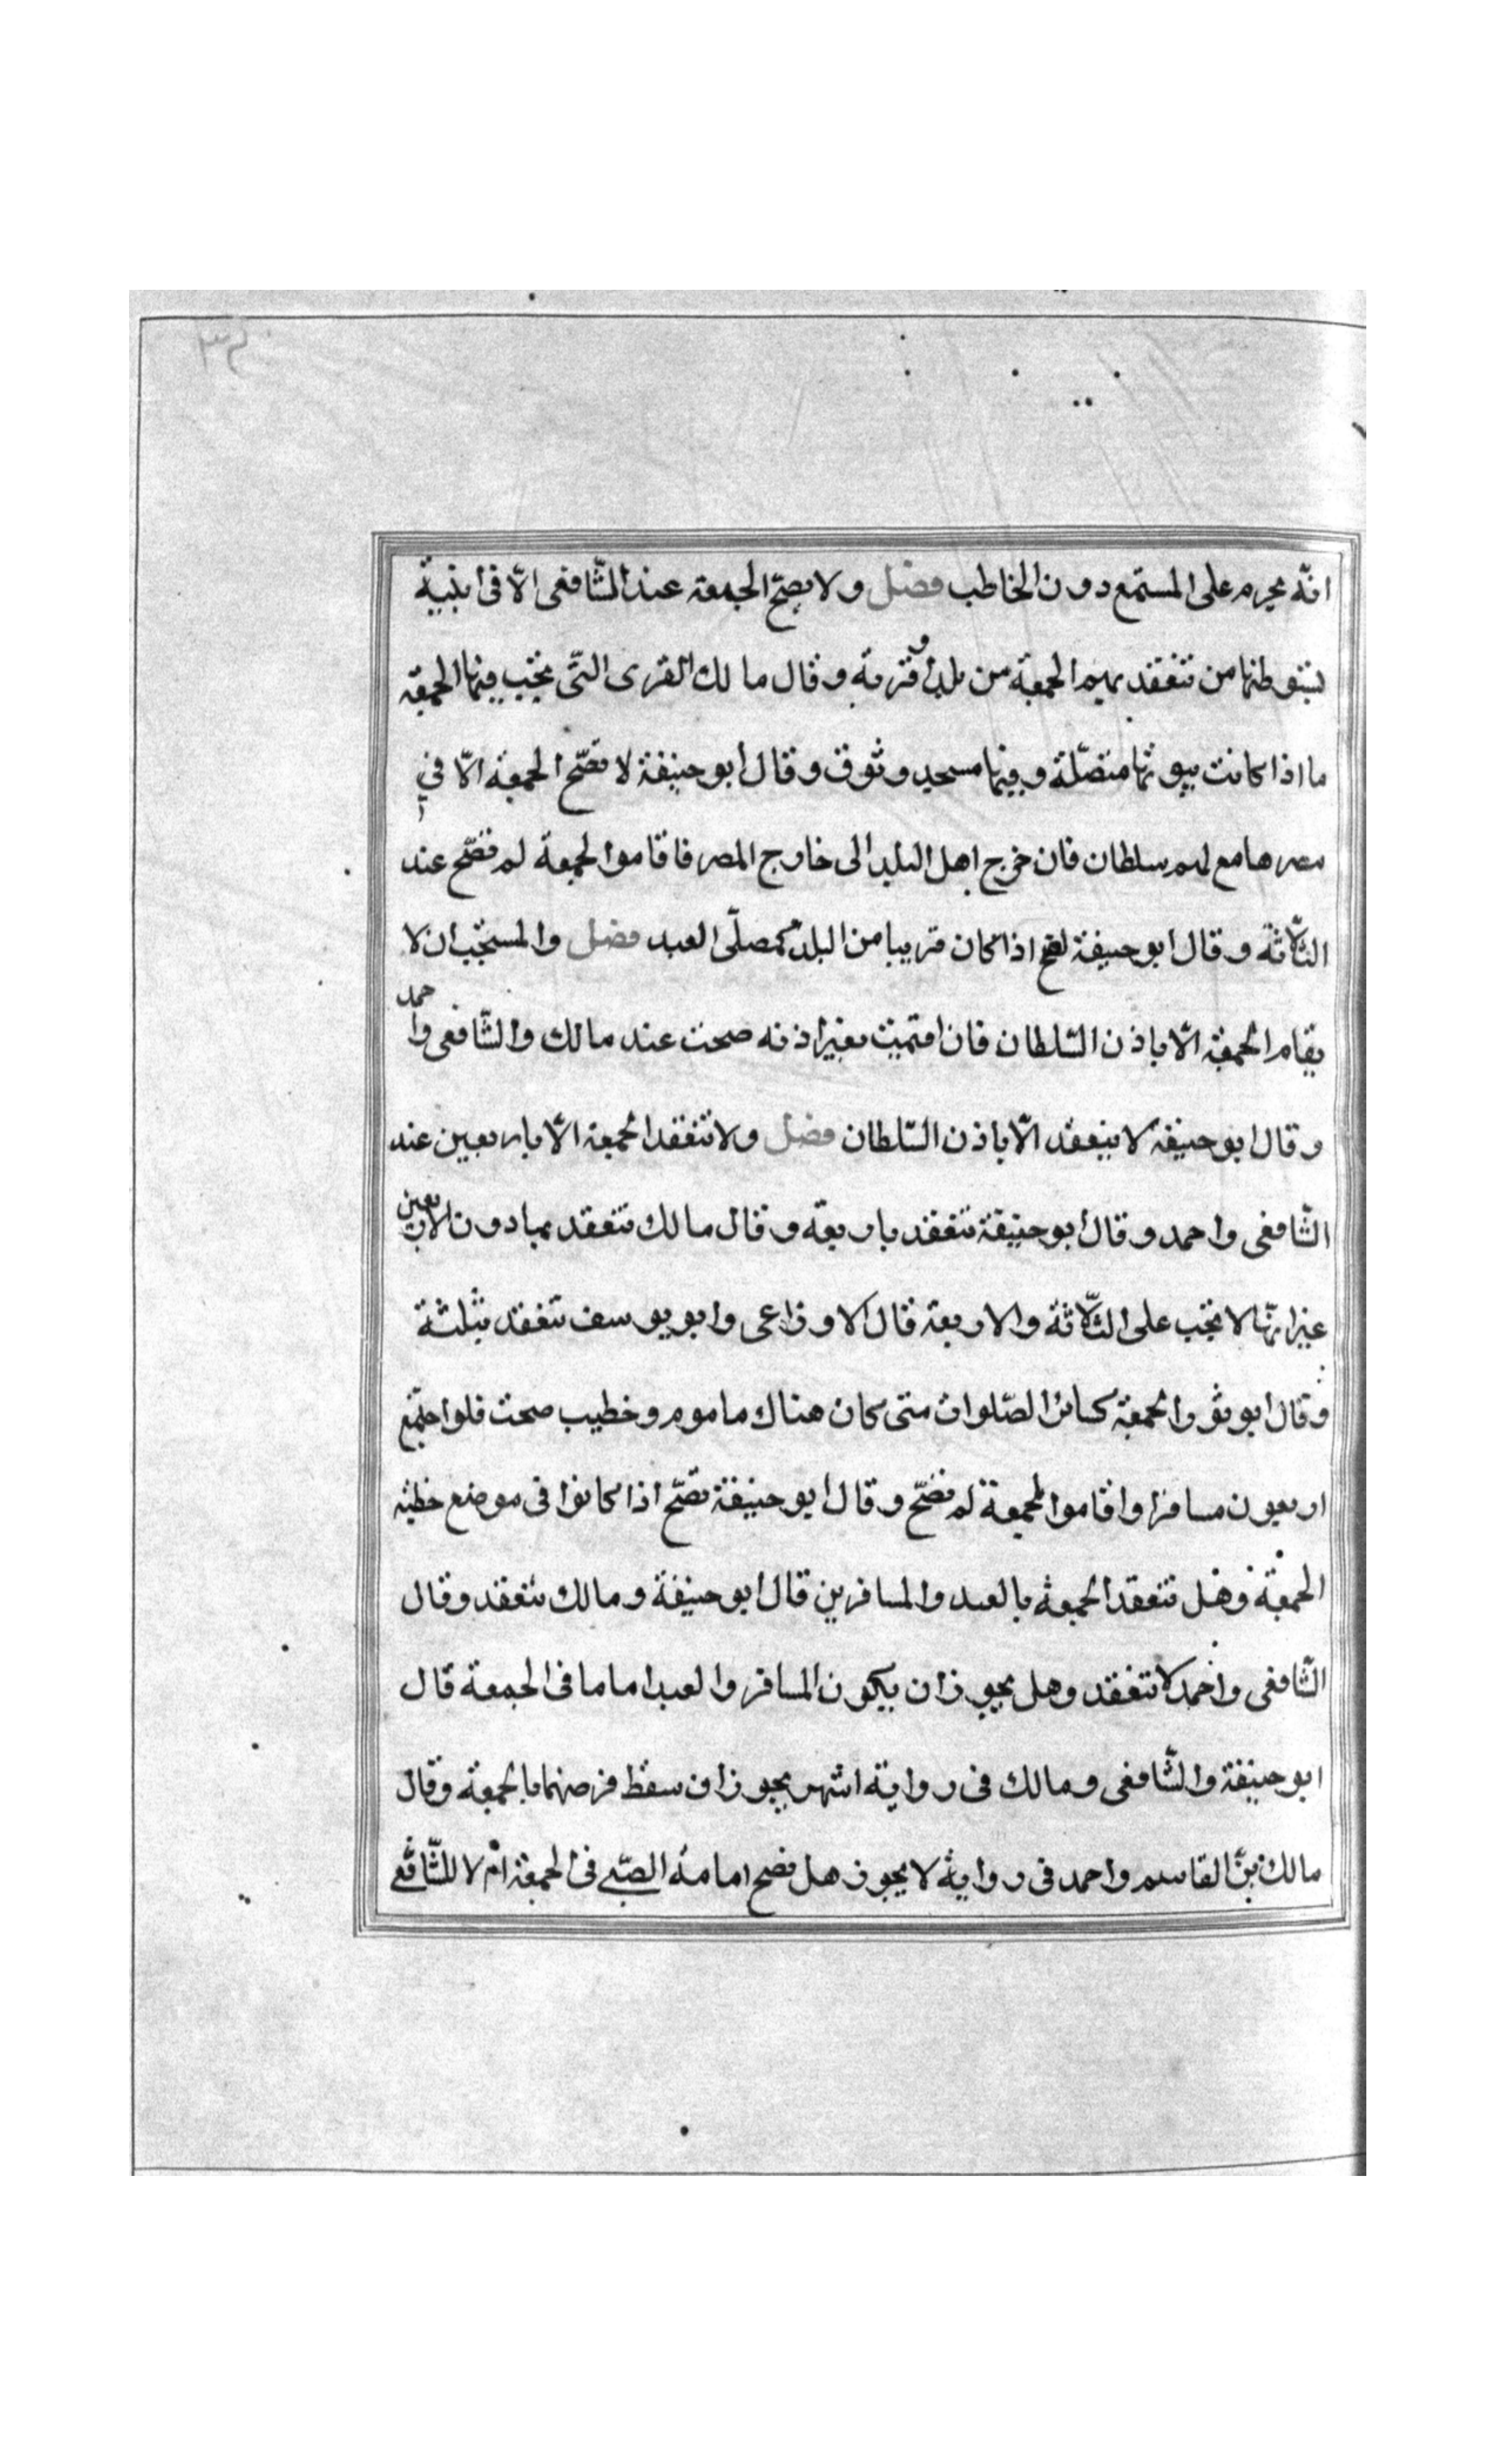 ٣٢
انّه يحرم على المستمع دون الخاطب فصل ولا يصحّ الجمعة عند الشّافعى الّا فى ابنية
يتوطنها من تنعقد بهم الجمعة من بلد او قرية وقال مالك القرى التّى يجب فيها الجمعة
ما اذا كانت بيوتها متصّلة وفيها مسجد وسوق وقال ابو حنيفة لا تصّح الجمعة الّا في
مصر جامع لهم سلطان فان خرج اهل البلد الى خارج المصر فاقاموا الجمعة لم تصّح عند
الثّلاثة وقال ابو حنيفة تصح اذا كان قريبا من البلد كمصلّى العيد فصل والمستحب ان لا
يقام الجمعة الّا باذن السّلطان فان اقيمت بغير اذنه صحت عند مالك والشّافعى واحمد
وقال ابو حنيفة لا ينعقد الّا باذن السّلطان فصل ولا تنعقد الجمعة الّا باربعين عند
الشّافعى واحمد وقال ابو حنيفة تنعقد باربعة وقال مالك تنعقد بما دون الاربعين
غير انّها لا تجب على الثّلاثة والاربعة قال الاوزاعى وابو يوسف تنعقد بثلثة
وقال ابو ثور والجمعة كسائر الصّلوات متى كان هناك ماموم وخطيب صحت فلو اجتمع
اربعون مسافرا واقاموا الجمعة لم تصّح وقال ابو حنيفة تصّح اذا كانوا فى موضع خطبه
الجمعة وهل تنعقد الجمعة بالعبد والمسافرين قال ابو حنيفة ومالك تنعقد وقال
الشّافعى واحمد لا تنعقد وهل يجوز ان يكون المسافر والعبد اماما فى الجمعة قال
ابو حنيفة والشّافعى ومالك فى رواية اشهب يجوز ان سقط فرضهما بالجمعة وقال
مالك بنّ القاسم واحمد فى رواية لا يجوز هل تصح امامة الصّبى فى الجمعة ام لا للشّافعى